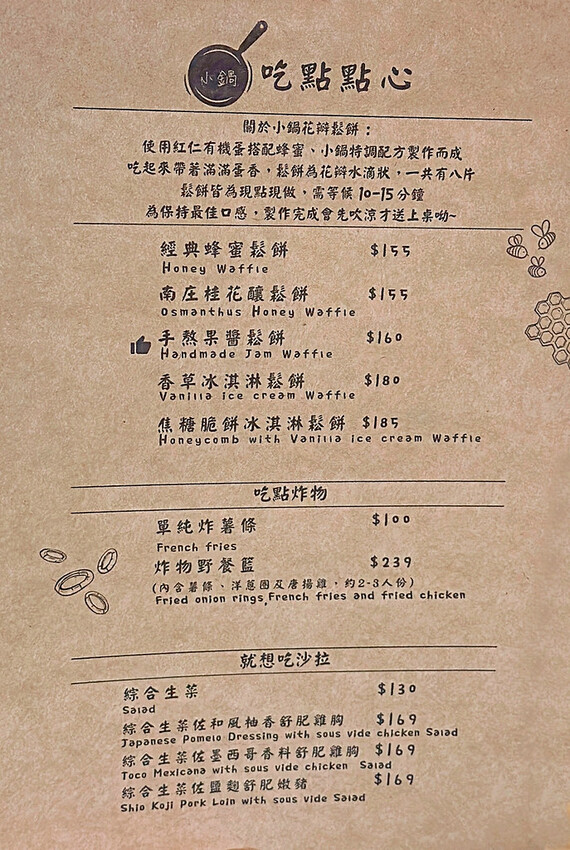 小鍋
吃點點心
關於小鍋花瓣鬆餅：
使用紅仁有機蛋搭配蜂蜜、小鍋特調配方製作而成
吃起來帶著滿滿蛋香，鬆餅為花瓣水滴狀，一共有八片
鬆餅皆為現點現做，需等候 10-15 分鐘
為保持最佳口感，製作完成會先吹涼才送上桌呦~
經典蜂蜜鬆餅 $155
Honey Waffle
南庄桂花釀鬆餅 $155
Osmanthus Honey Waffle
手熬果醬鬆餅 $160
Handmade Jam Waffle
香草冰淇淋鬆餅 $180
Vanilla ice cream Waffle
焦糖脆餅冰淇淋鬆餅 $185
Honeycomb with Vanilla ice cream Waffle
吃點炸物
單純炸薯條 $100
French fries
炸物野餐籃 $239
(內含薯條、洋蔥圈及唐揚雞，約2-3人份)
Fried onion rings,French fries and fried chicken
就想吃沙拉
綜合生菜 $130
Salad
綜合生菜佐和風柚香舒肥雞胸 $169
Japanese Pomelo Dressing with sous vide chicken Salad
綜合生菜佐墨西哥香料舒肥雞胸 $169
Toco Mexicana with sous vide chicken Salad
綜合生菜佐鹽麴舒肥嫩豬 $169
Shio Koji Pork Loin with sous vide Salad